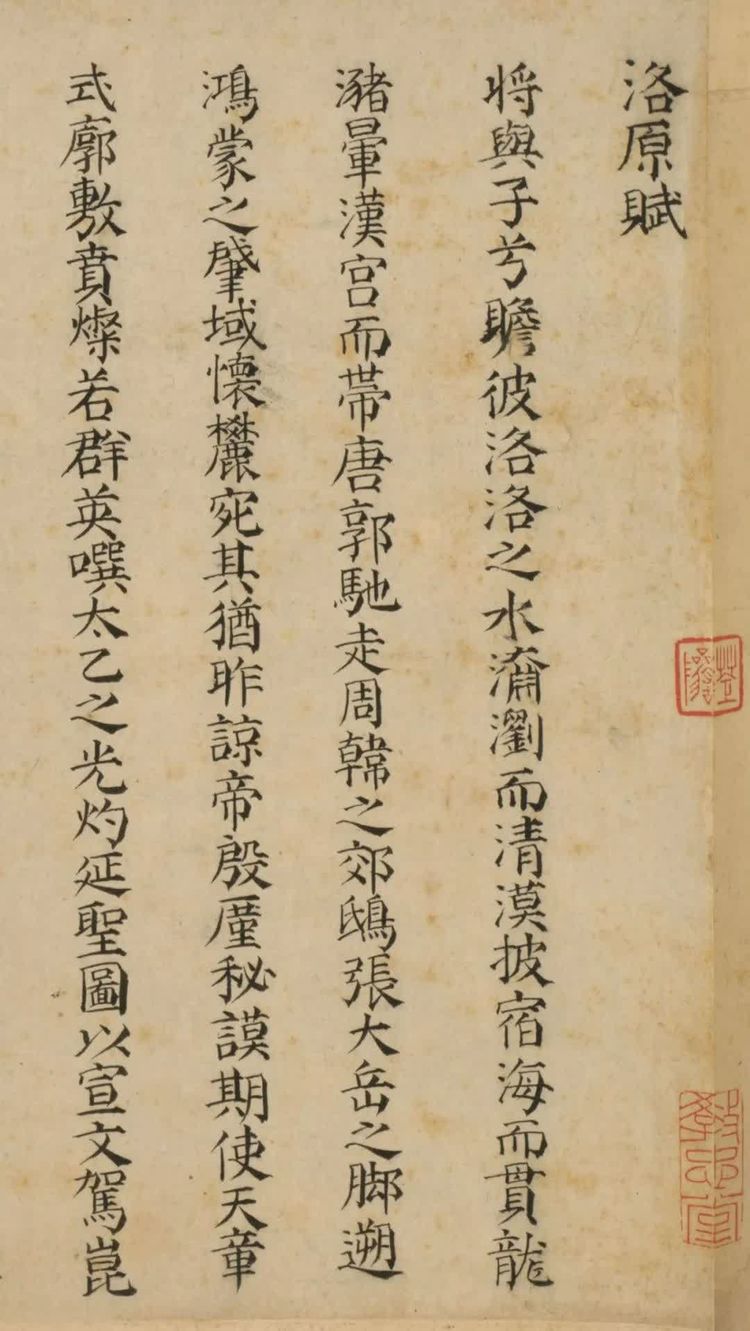 洛原賦
將與子兮瞻彼洛洛之水㵼瀏而清漠披宿海而貫龍
瀦暈漢宮而帶唐郭馳走周韓之郊鴟張大岳之腳遡
鴻蒙之肇域懷麓宛其猶昨諒帝殷厪秘謨期使天章
式廓敷賁燦若群英噀太乙之光灼延聖圖以宣文駕崑